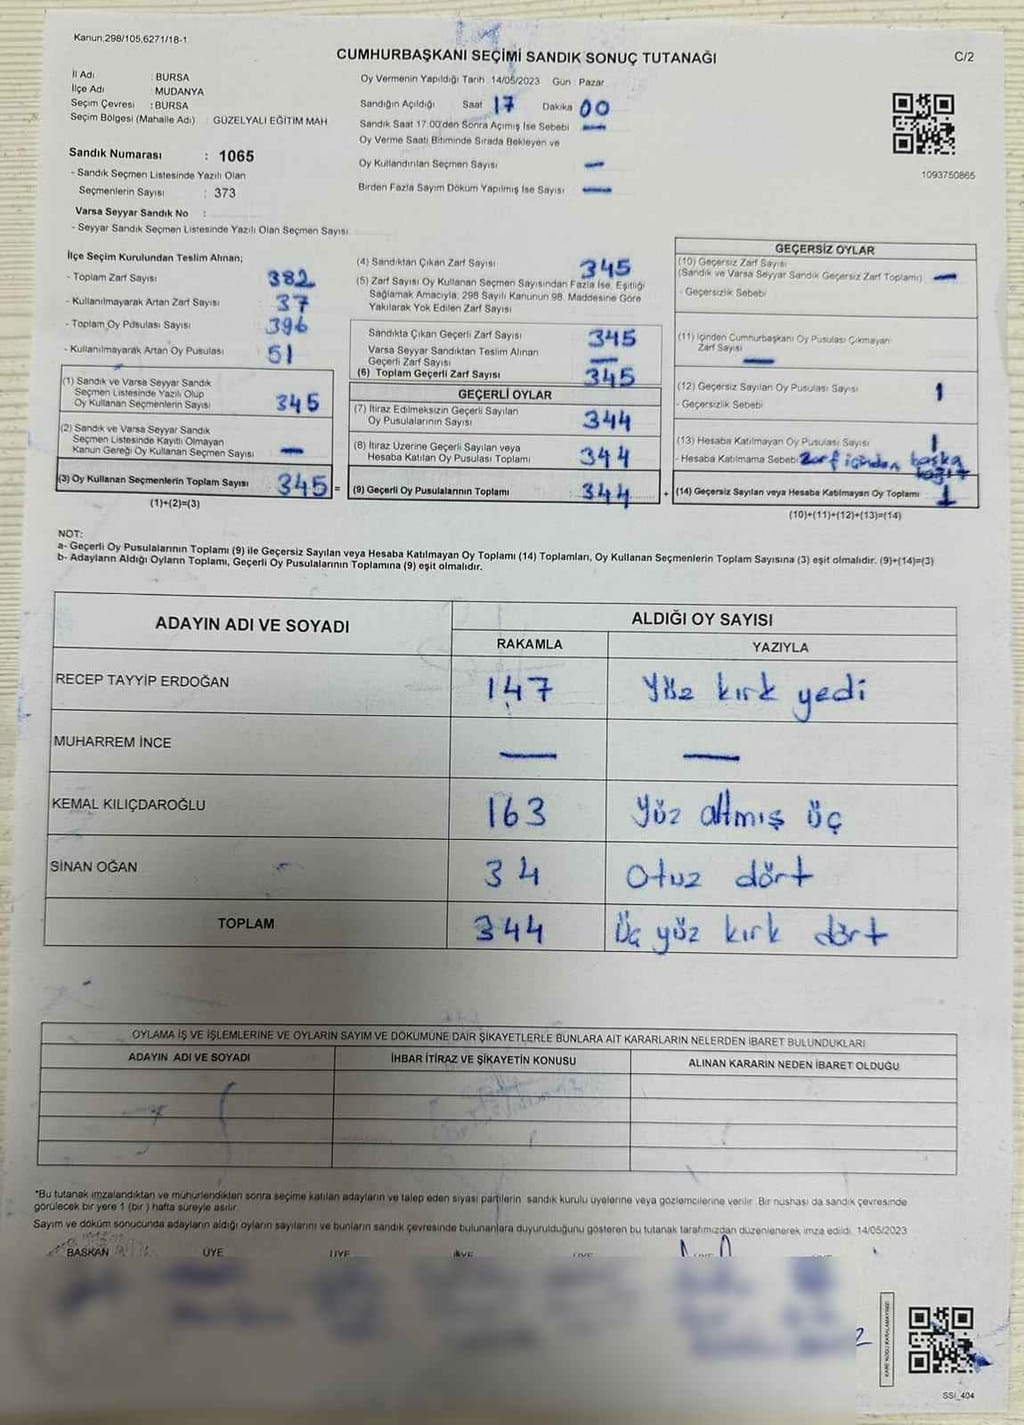 Kanun.298/105,6271/18-1
CUMHURBAŞKANI SEÇİMİ SANDIK SONUÇ TUTANAĞI
C/2
İl Adı : BURSA
İlçe Adı : MUDANYA
Seçim Çevresi : BURSA
Seçim Bölgesi (Mahalle Adı) : GÜZELYALI EĞİTİM MAH
Sandık Numarası : 1065
- Sandık Seçmen Listesinde Yazılı Olan
Seçmenlerin Sayısı : 373
Varsa Seyyar Sandık No :
- Seyyar Sandık Seçmen Listesinde Yazılı Olan Seçmen Sayısı
Oy Vermenin Yapıldığı Tarih 14/05/2023 Gün : Pazar
Sandığın Açıldığı Saat 17 Dakika 00
Sandık Saat 17:00'den Sonra Açımış İse Sebebi —
Oy Verme Saati Bitiminde Sırada Bekleyen ve
Oy Kullandırılan Seçmen Sayısı —
Birden Fazla Sayım Döküm Yapılmış İse Sayısı —
1093750865
İlçe Seçim Kurulundan Teslim Alınan;
- Toplam Zarf Sayısı 382
- Kullanılmayarak Artan Zarf Sayısı 37
- Toplam Oy Pusulası Sayısı 396
- Kullanılmayarak Artan Oy Pusulası 51
(1) Sandık ve Varsa Seyyar Sandık
Seçmen Listesinde Yazılı Olup
Oy Kullanan Seçmenlerin Sayısı 345
(2) Sandık ve Varsa Seyyar Sandık
Seçmen Listesinde Kayıtlı Olmayan
Kanun Gereği Oy Kullanan Seçmen Sayısı —
(3) Oy Kullanan Seçmenlerin Toplam Sayısı 345 =
(1)+(2)=(3)
(4) Sandıktan Çıkan Zarf Sayısı 345
(5) Zarf Sayısı Oy Kullanan Seçmen Sayısından Fazla İse, Eşitliği
Sağlamak Amacıyla; 298 Sayılı Kanunun 98. Maddesine Göre
Yakılarak Yok Edilen Zarf Sayısı
Sandıkta Çıkan Geçerli Zarf Sayısı 345
Varsa Seyyar Sandıktan Teslim Alınan
Geçerli Zarf Sayısı —
(6) Toplam Geçerli Zarf Sayısı 345
GEÇERLİ OYLAR
(7) İtiraz Edilmeksizin Geçerli Sayılan
Oy Pusulalarının Sayısı 344
(8) İtiraz Üzerine Geçerli Sayılan veya
Hesaba Katılan Oy Pusulası Toplamı 344
(9) Geçerli Oy Pusulalarının Toplamı 344 +
GEÇERSİZ OYLAR
(10) Geçersiz Zarf Sayısı
(Sandık ve Varsa Seyyar Sandık Geçersiz Zarf Toplamı) —
- Geçersizlik Sebebi
(11) İçinden Cumhurbaşkanı Oy Pusulası Çıkmayan
Zarf Sayısı —
(12) Geçersiz Sayılan Oy Pusulası Sayısı 1
- Geçersizlik Sebebi
(13) Hesaba Katılmayan Oy Pusulası Sayısı 1
- Hesaba Katılmama Sebebi Zarf içinden başka
kağıt
(14) Geçersiz Sayılan veya Hesaba Katılmayan Oy Toplamı 1
(10)+(11)+(12)+(13)=(14)
NOT:
a- Geçerli Oy Pusulalarının Toplamı (9) ile Geçersiz Sayılan veya Hesaba Katılmayan Oy Toplamı (14) Toplamları, Oy Kullanan Seçmenlerin Toplam Sayısına (3) eşit olmalıdır. (9)+(14)=(3)
b- Adayların Aldığı Oyların Toplamı, Geçerli Oy Pusulalarının Toplamına (9) eşit olmalıdır.
ADAYIN ADI VE SOYADI
ALDIĞI OY SAYISI
RAKAMLA YAZIYLA
RECEP TAYYİP ERDOĞAN 147 Yüz kırk yedi
MUHARREM İNCE — —
KEMAL KILIÇDAROĞLU 163 Yüz altmış üç
SİNAN OĞAN 34 Otuz dört
TOPLAM 344 Üç yüz kırk dört
OYLAMA İŞ VE İŞLEMLERİNE VE OYLARIN SAYIM VE DÖKÜMÜNE DAİR ŞİKAYETLERLE BUNLARA AİT KARARLARIN NELERDEN İBARET BULUNDUKLARI
ADAYIN ADI VE SOYADI İHBAR İTİRAZ VE ŞİKAYETİN KONUSU ALINAN KARARIN NEDEN İBARET OLDUĞU
*Bu tutanak imzalandıktan ve mühürlendikten sonra seçime katılan adayların ve talep eden siyasi partilerin sandık kurulu üyelerine veya gözlemcilerine verilir. Bir nüshası da sandık çevresinde
görülecek bir yere 1 (bir) hafta süreyle asılır.
Sayım ve döküm sonucunda adayların aldığı oyların sayılarını ve bunların sandık çevresinde bulunanlara duyurulduğunu gösteren bu tutanak tarafımızdan düzenlenerek imza edildi. 14/05/2023
BAŞKAN ÜYE ÜYE ÜYE
SSI_404